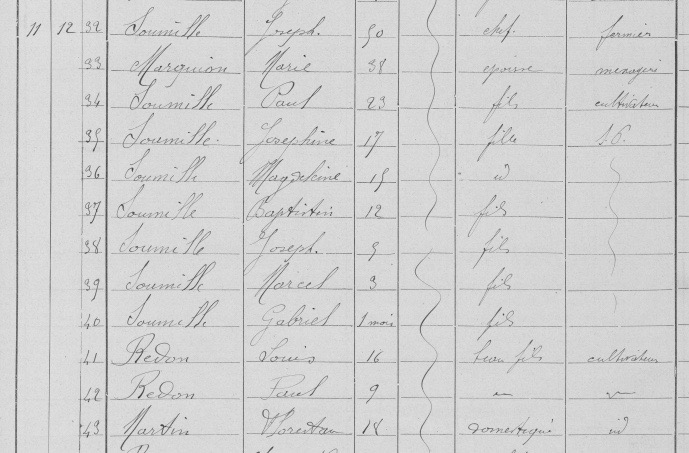 11 12 32 Soumille Joseph. 50 chef. fermier
33 Marquion Marie 38 epouse menagère
34 Soumille Paul 23 fils cultivateur
35 Soumille. Josephine 17 fille S.P.
36 Soumille Magdeleine 15 id
37 Soumille Baptistin 12 fils
38 Soumille Joseph. 5 fils
39 Soumille Marcel 3 fils
40 Soumille Gabriel 1 mois fils
41 Redon Louis 16 beau fils cultivateur
42 Redon Paul 9
43 Martin 18 domestique id